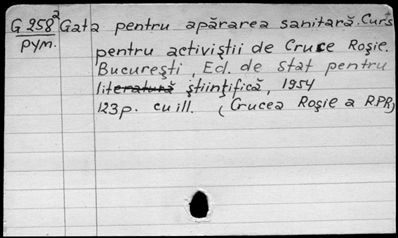 G 258² Gata pentru apărarea sanitară. Curs
pym. pentru activiştii de Cruce Roşie.
Bucureşti, Ed. de stat pentru
literatură ştiinţifică, 1954
123p. cu ill. (Crucea Roşie a RPR)